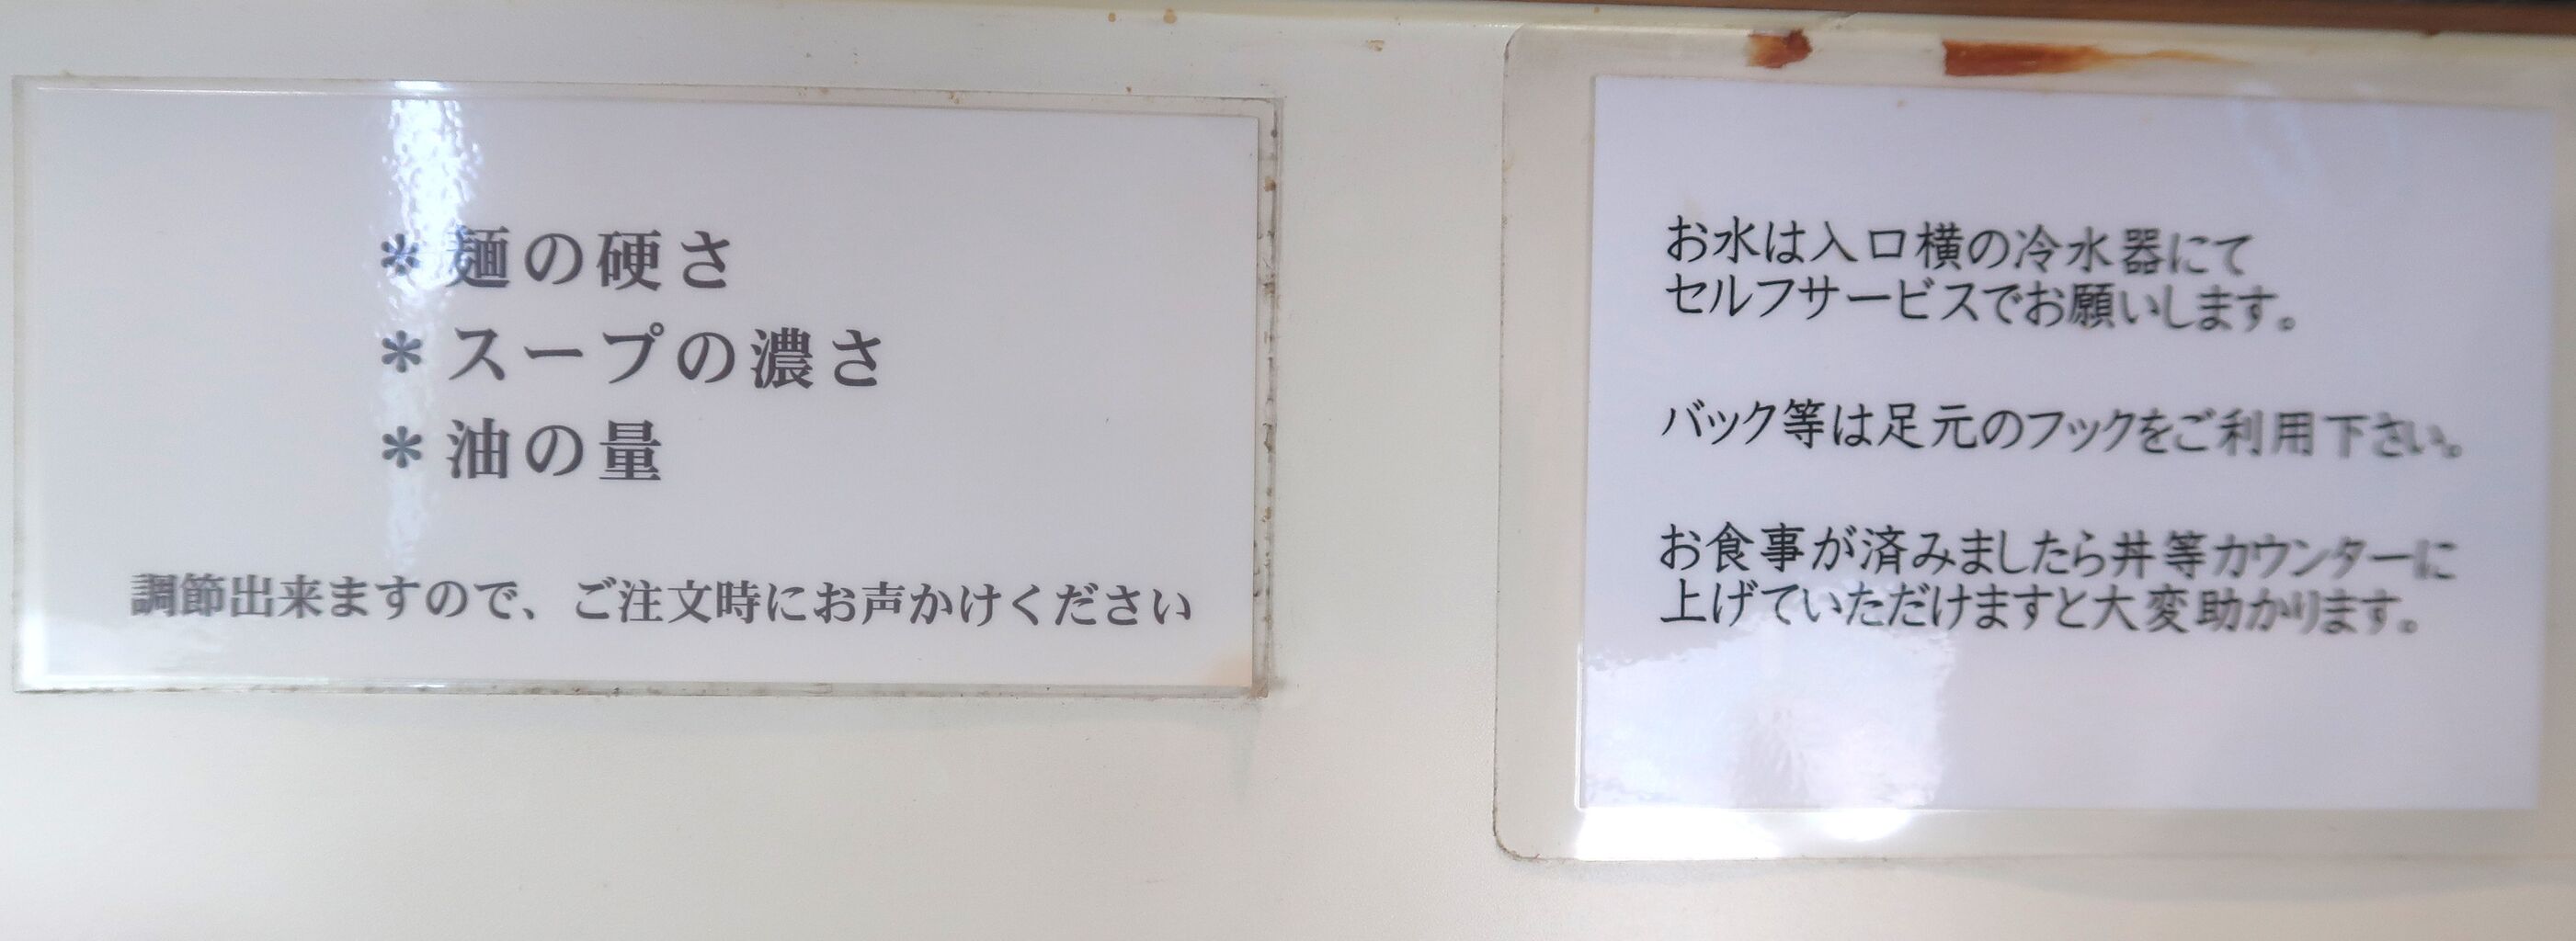 ＊麺の硬さ
＊スープの濃さ
＊油の量
調節出来ますので、ご注文時にお声かけください
お水は入口横の冷水器にて
セルフサービスでお願いします。
バック等は足元のフックをご利用下さい。
お食事が済みましたら丼等カウンターに
上げていただけますと大変助かります。